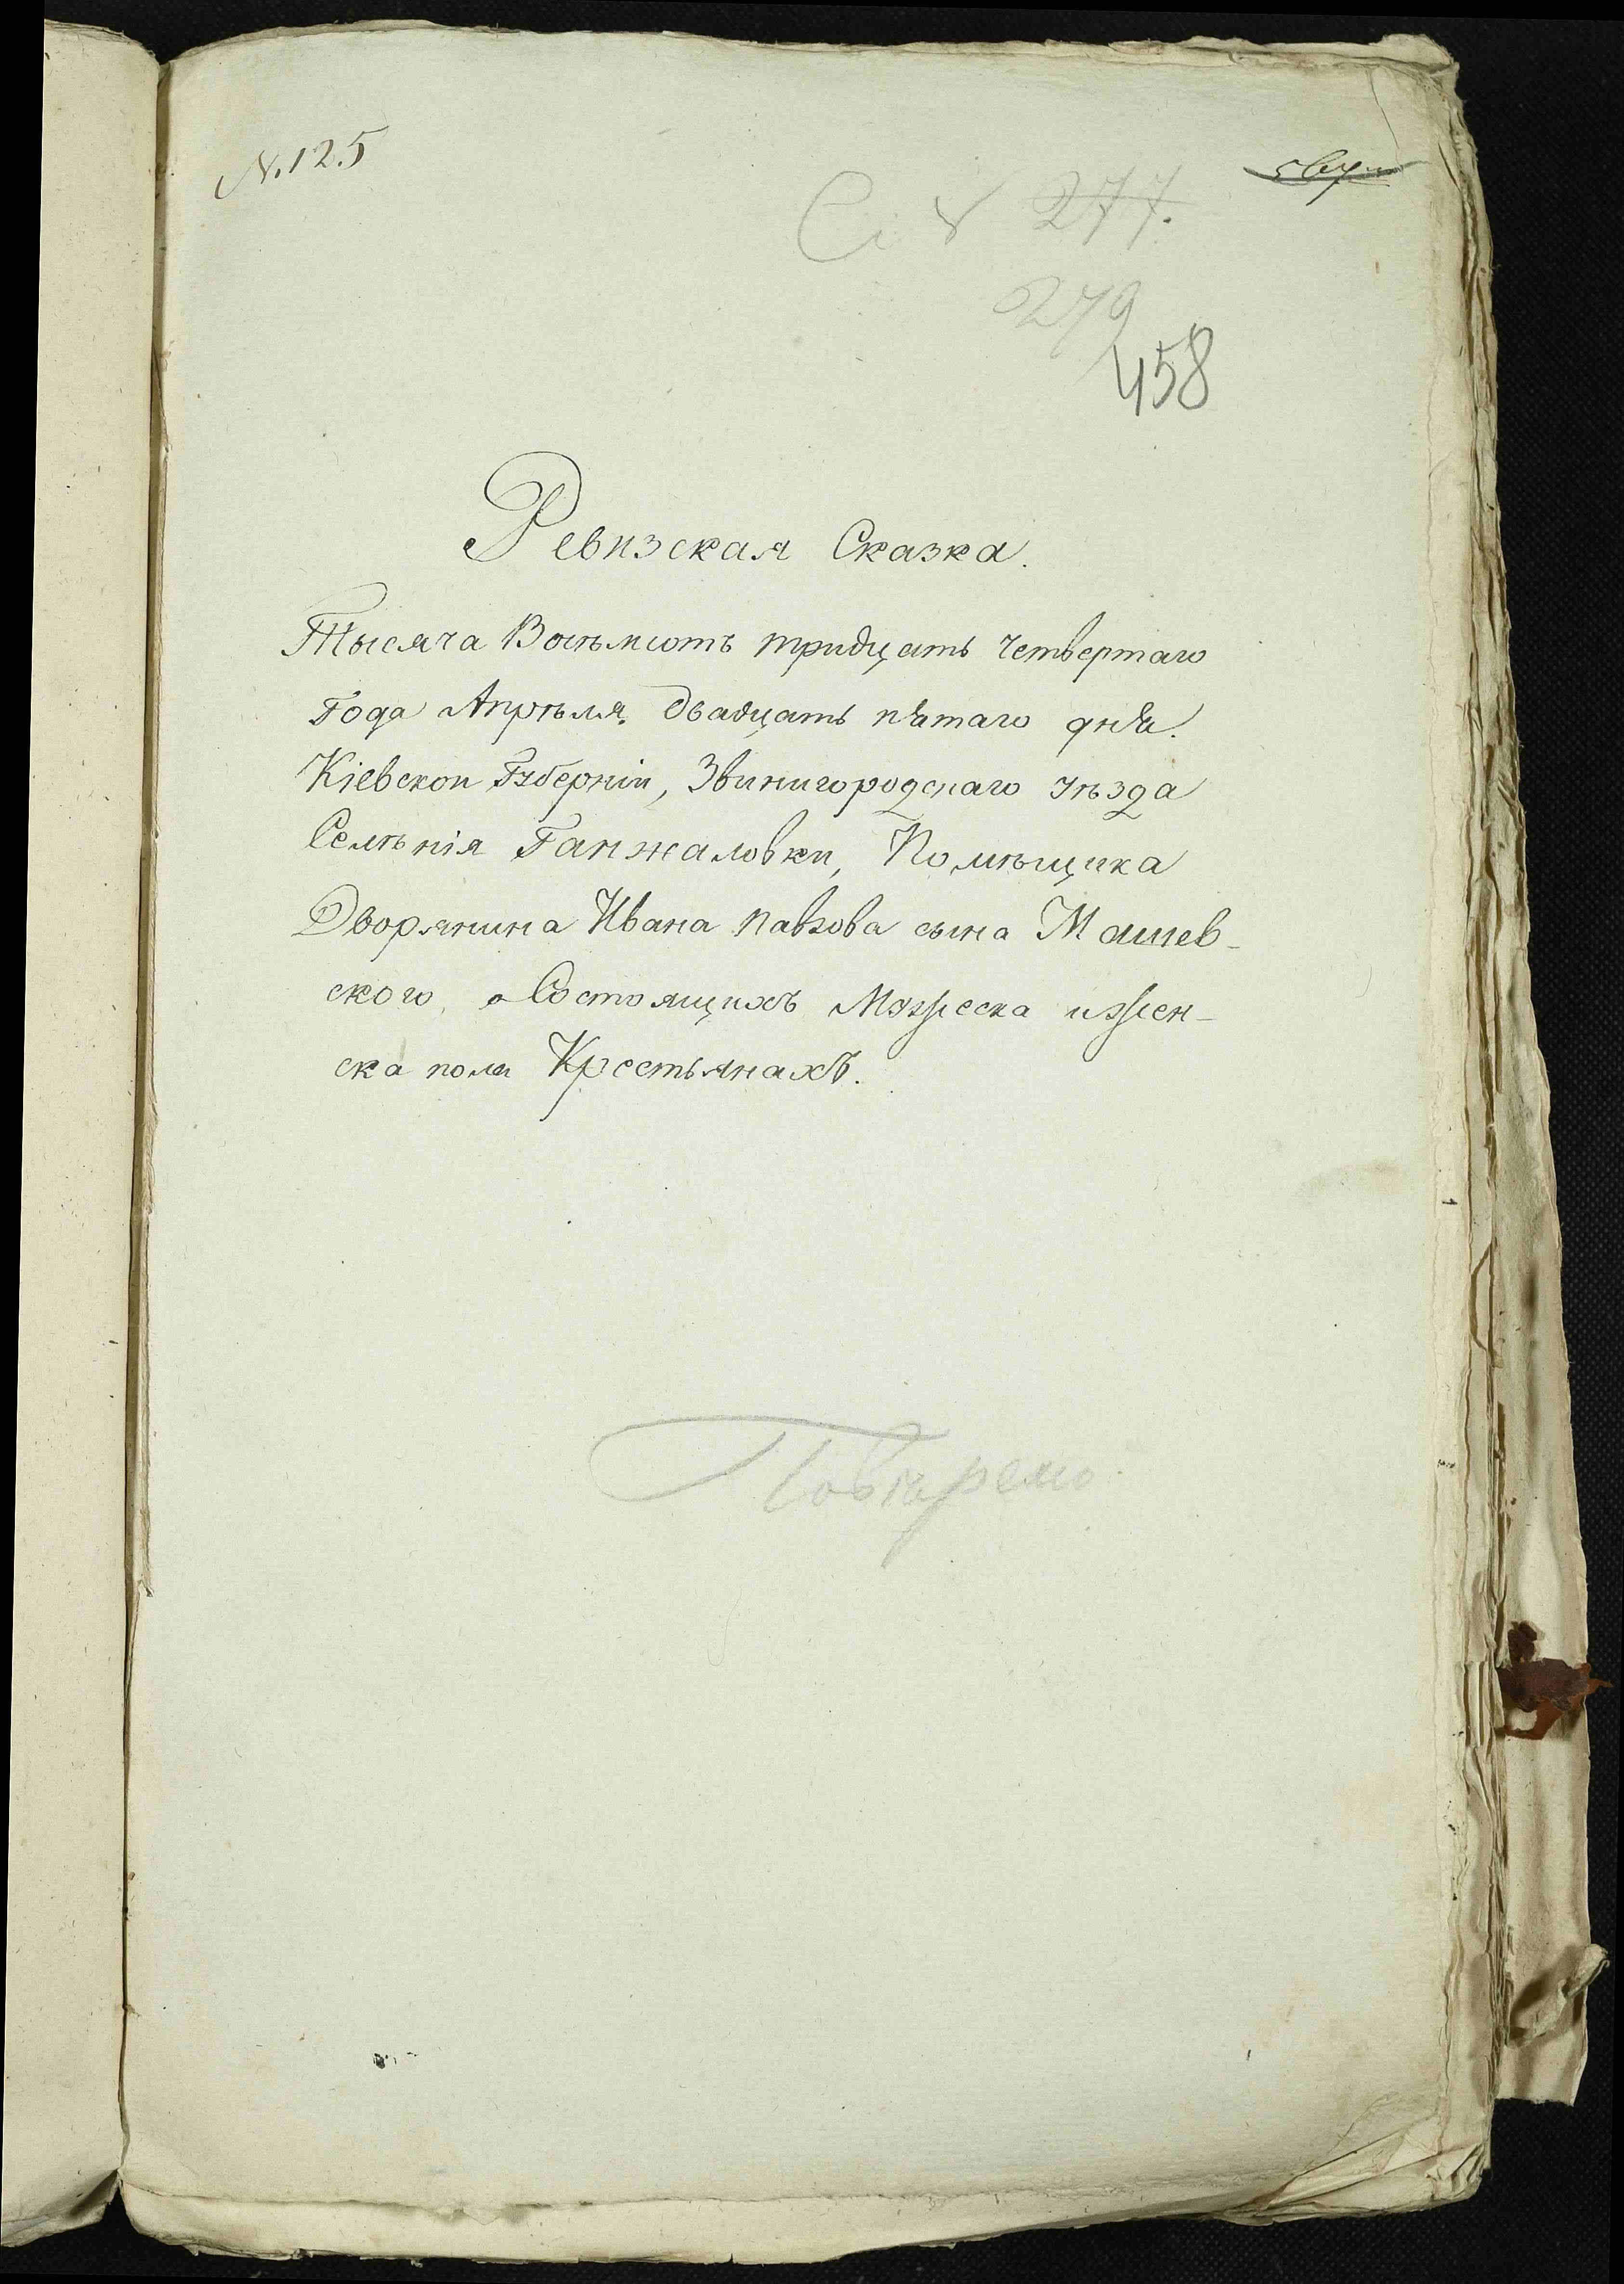 N. 125
277.
279
458
Ревизская Сказка.
Тысяча Восѣмсотъ тридцать Четвертаго
Года Апрѣля двадцать пятаго дня.
Кіевской Губерніи, Звинигородскаго Уѣзда
Селѣнія Ганжаловки, Помѣщика
Дворянина Ивана Павлова сына Машев-
ского, о Состоящихъ Мужеска и жен-
ска пола Крестьянахъ.